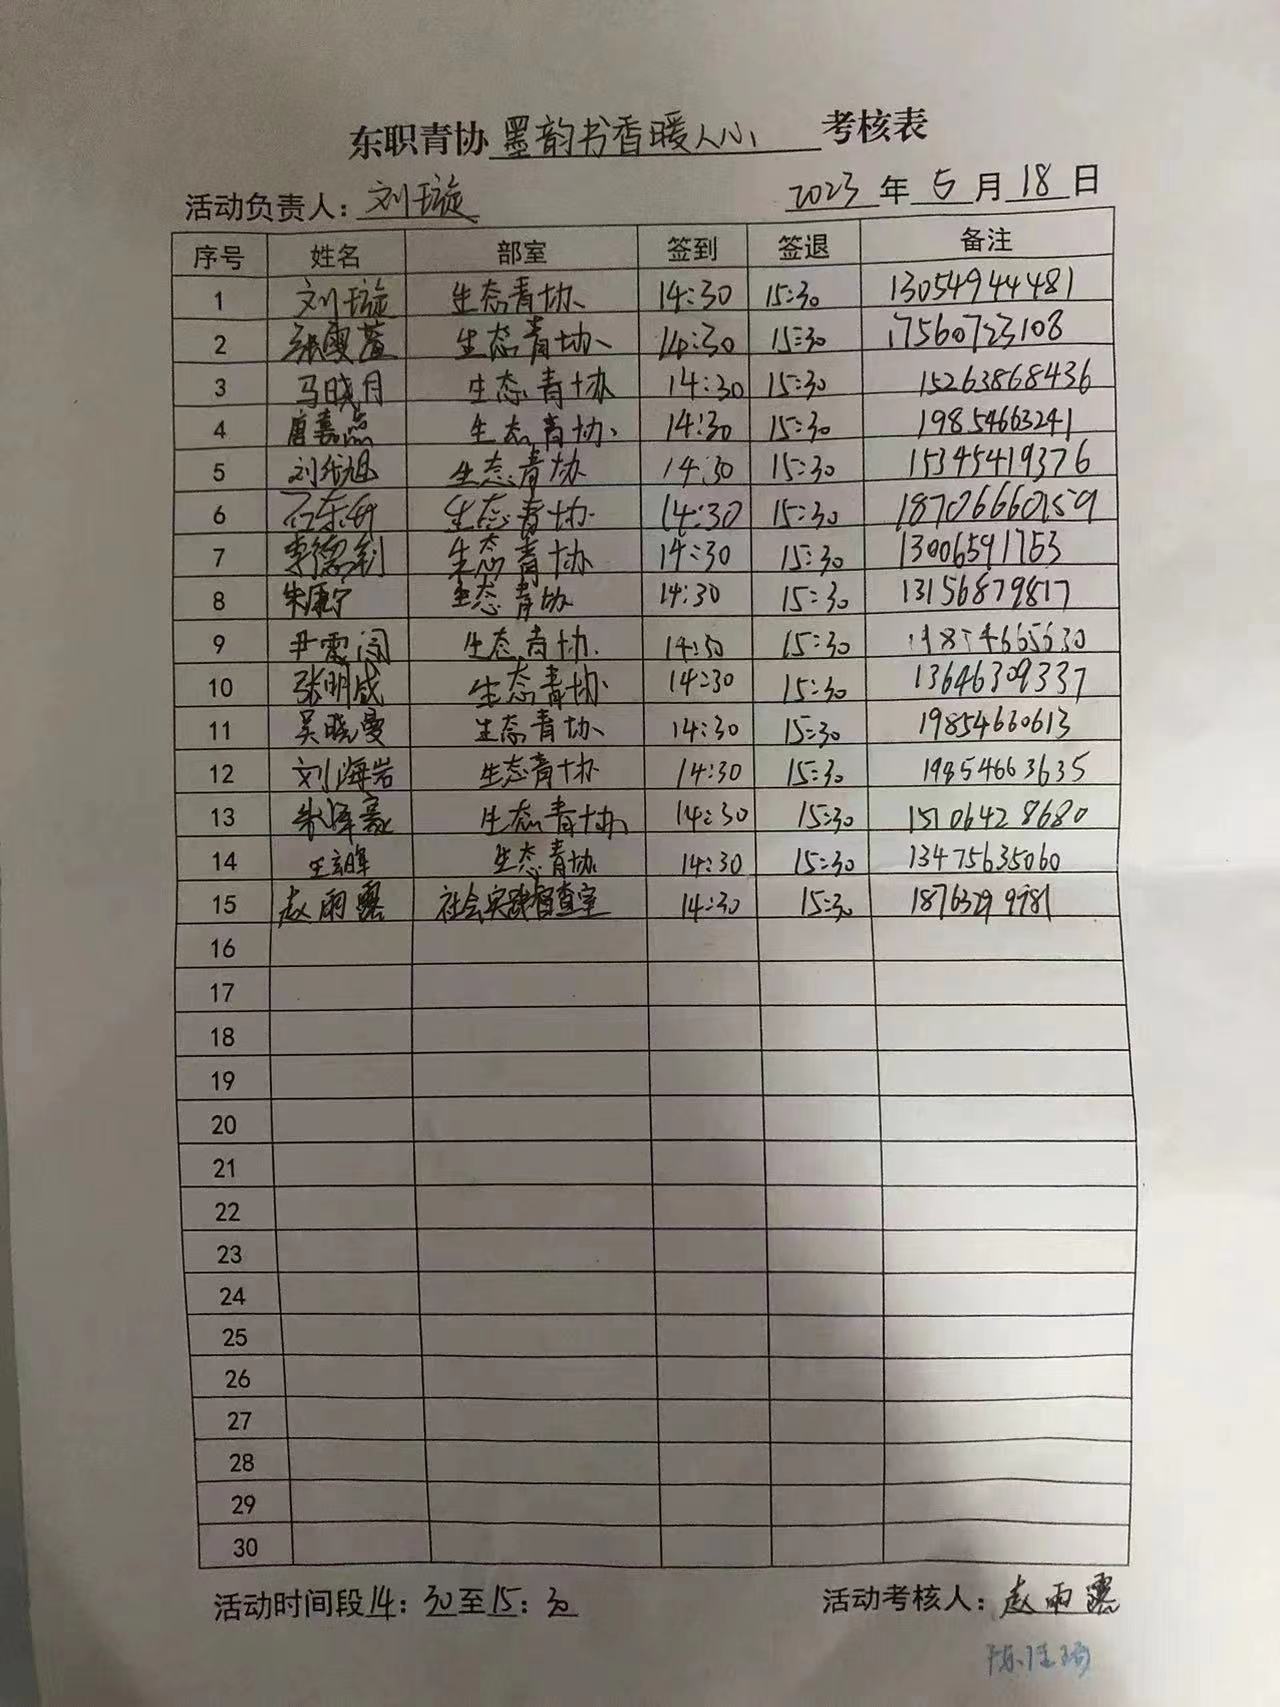 东职青协墨韵书香暖人心考核表
活动负责人：刘璇 2023年5月18日
序号 姓名 部室 签到 签退 备注
1 刘璇 生态青协 14:30 15:30 13054944481
2 生态青协 14:30 15:30 17560723108
3 马晓月 生态青协 14:30 15:30 15263868436
4 唐嘉点 生态青协 14:30 15:30 19854663241
5 生态青协 14:30 15:30 15345419376
6 石东升 生态青协 14:30 15:30
7 李德钊 生态青协 14:30 15:30 13006591763
8 朱康宁 生态青协 14:30 15:30 13156879817
9 尹震阔 生态青协 14:30 15:30
10 张明成 生态青协 14:30 15:30 13646309337
11 吴晓曼 生态青协 14:30 15:30 19854660613
12 刘海岩 生态青协 14:30 15:30 19854663635
13 朱泽豪 生态青协 14:30 15:30 15106428680
14 王玄晖 生态青协 14:30 15:30 13475635060
15 赵雨露 社会实践督查室 14:30 15:30 18763299981
16
17
18
19
20
21
22
23
24
25
26
27
28
29
30
活动时间段14：30至15：30 活动考核人：赵雨露